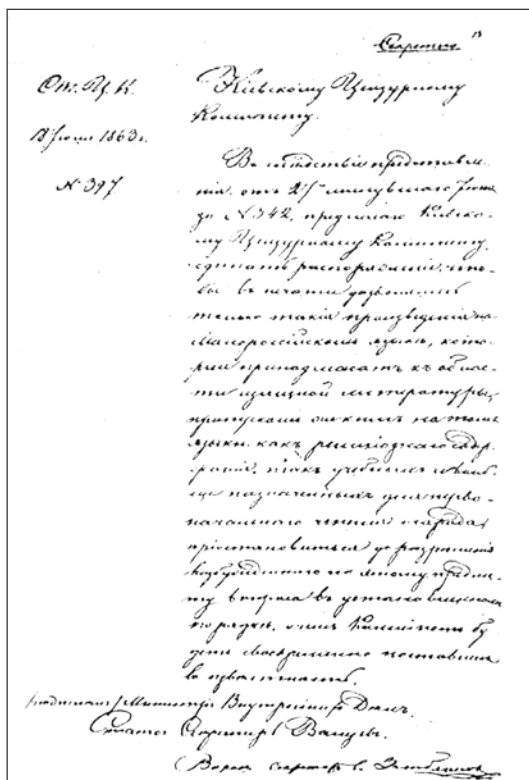 Секретно
18
От. Ц. К.
18 Іюля 1863 г.
№ 394
Кіевскому Цензурному
Комитету.
Вслѣдствіе представле-
нія отъ 27 минувшаго Іюня
за № 342, предлагаю Кіевско-
му Цензурному Комитету,
сдѣлать распоряженіе, что-
бы въ печати дозволялись
только такія произведенія на
Малороссійскомъ языкѣ, кото-
рыя принадлежатъ къ облас-
ти изящной литературы;
пропускомъ же книгъ на томъ
языкѣ, какъ религіознаго содер-
жанія, такъ учебныхъ и вооб-
ще назначаемыхъ для перво-
начальнаго чтенія народа,
пріостановиться до разрѣшенія
возбужденнаго по этому предме-
ту вопроса въ установленномъ
порядкѣ, о чемъ Комитетъ бу-
детъ своевременно поставленъ
въ извѣстность.
Подписалъ Министръ Внутреннихъ Дѣлъ,
Статсъ Секретарь Валуевъ.